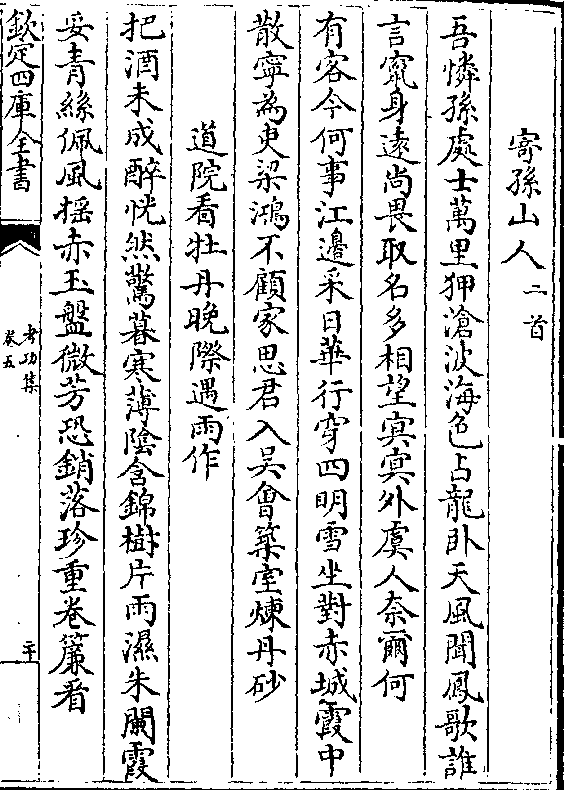 寄孫山人二首
吾憐孫處士萬里狎滄波海色占龍卧天風聞鳳歌誰
言竄身遠尚畏取名多相望冥冥外虞人奈爾何
有客今何事江邊采日華行穿四明雪坐對赤城霞中
散寧為吏梁鴻不顧家思君入吳會築室煉丹砂
道院看牡丹晚際遇雨作
把酒未成醉恍然驚暮寒薄陰含錦樹片雨濕朱闌霞
妥青絲佩風揺赤玉盤微芳恐銷落珍重卷簾看
欽定四庫全書
考功集
卷五
二十